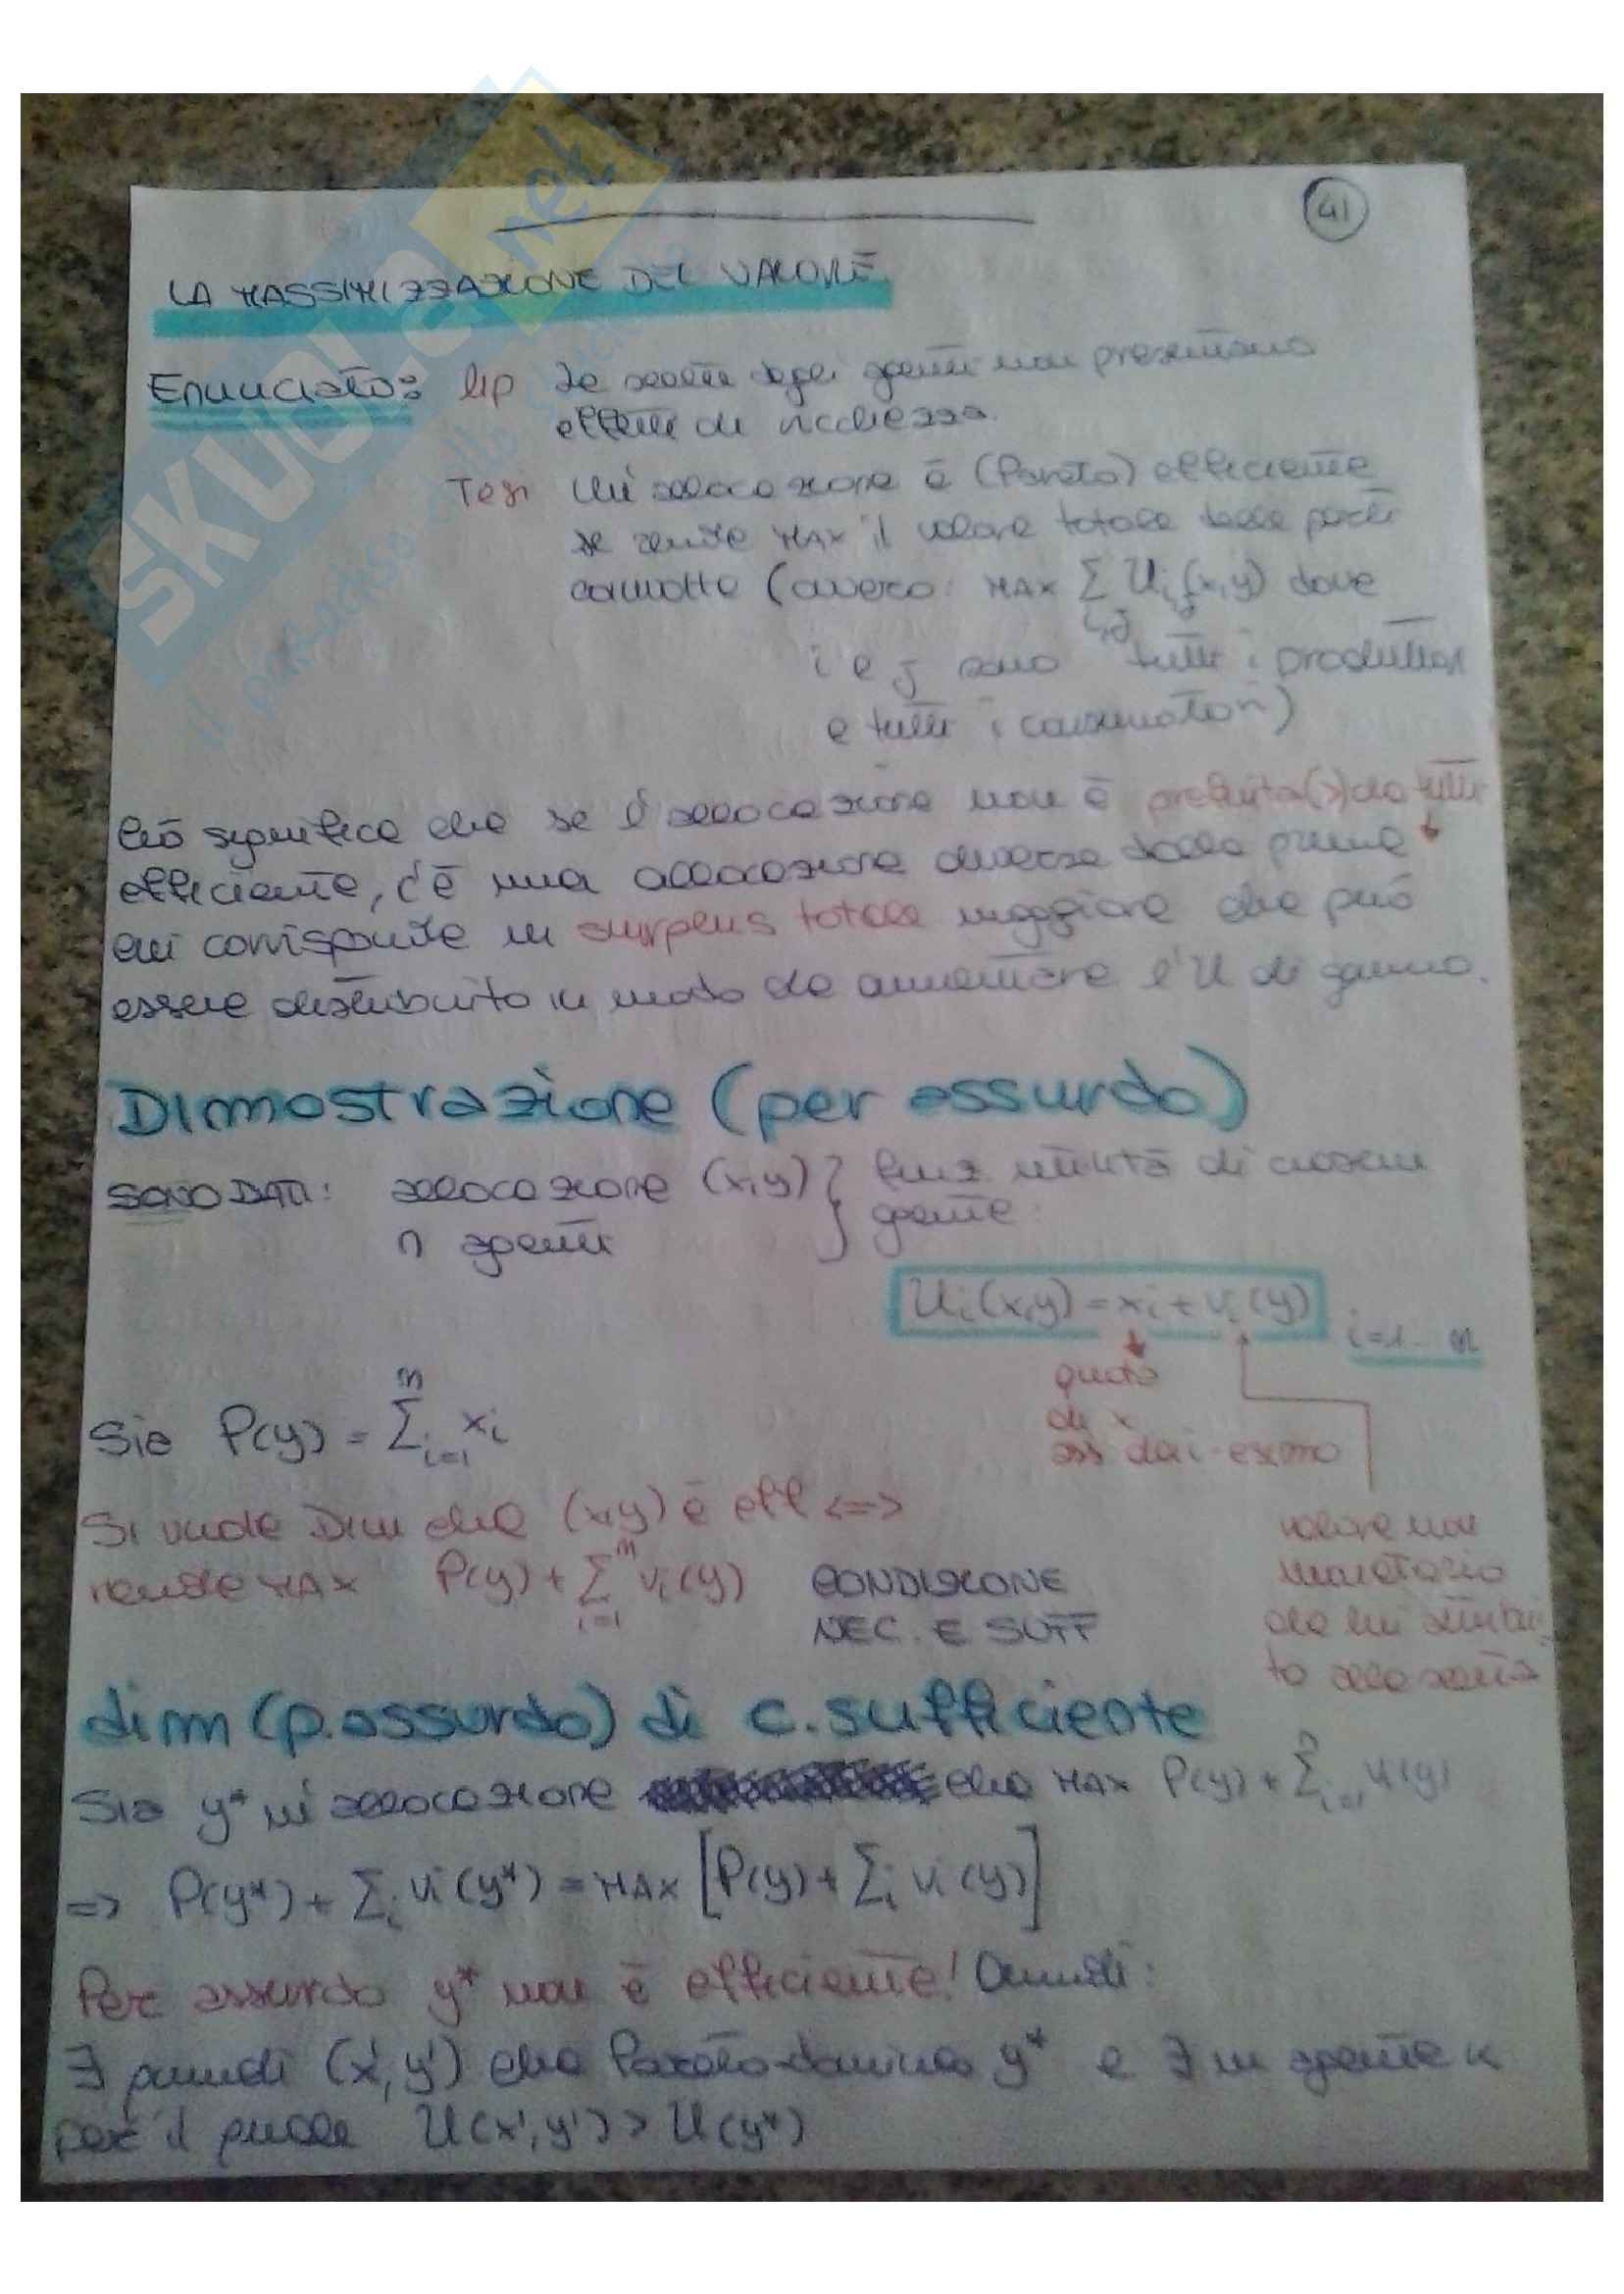 41
LA MASSIMIZZAZIONE DEL VALORE
Enunciato: hp le scelte degli agenti non presentano
effetti di ricchezza.
Tesi Un'allocazione è (Pareto) efficiente
se rende MAX il valore totale delle parti
coinvolte (ovvero: MAX Σ Ui,j(x,y) dove
i,j
i e j sono tutti i produttori
e tutti i consumatori)
Ciò significa che se l'allocazione non è preferita(>) da tutti
efficiente, c'è una allocazione diversa dalla prima
cui corrisponde un surplus totale maggiore che può
essere distribuito in modo da aumentare l'U di ognuno.
Dimostrazione (per assurdo)
SONO DATI: allocazione (x,y) } funz utilità di ciascun
n agenti agente:
Ui(x,y) = xi + vi(y) i=1... n
quota
di x
ass da i-esimo
Sia P(y) = Σ i=1 n xi
Si vuole Dim che (x,y) è eff <=>
rende MAX P(y) + Σ i=1 n vi(y) CONDIZIONE
NEC. E SUFF
valore non
monetario
da lui attribui
to alla scelta
dim (p.assurdo) di c.sufficiente
Sia y* un'allocazione che MAX P(y) + Σ i=1 n vi(y)
=> P(y*) + Σi vi(y*) = MAX [P(y) + Σi vi(y)]
Per assurdo y* non è efficiente! Quindi:
∃ quindi (x',y') che Pareto-domina y* e ∃ un agente k
per il quale U(x',y') > U(y*)
SKUOLA.net
il paradiso dello studente